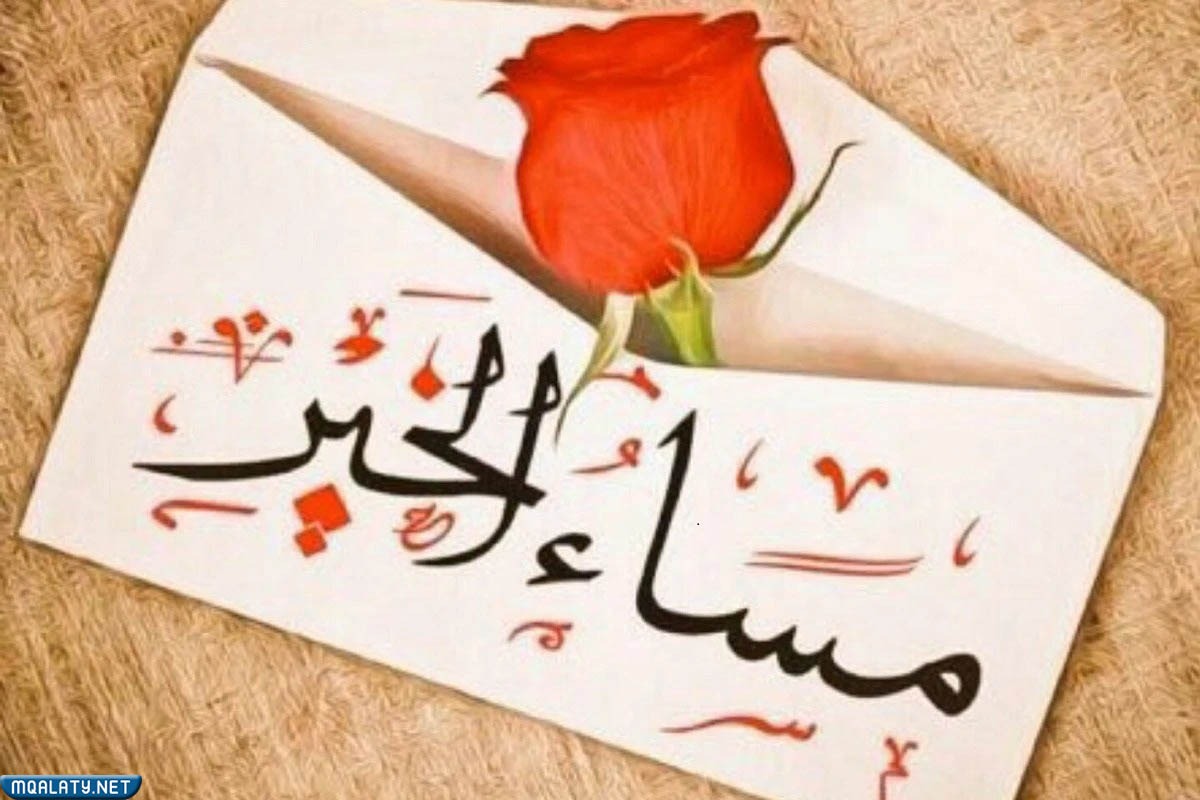 مساء الخير
MQALATY.NET